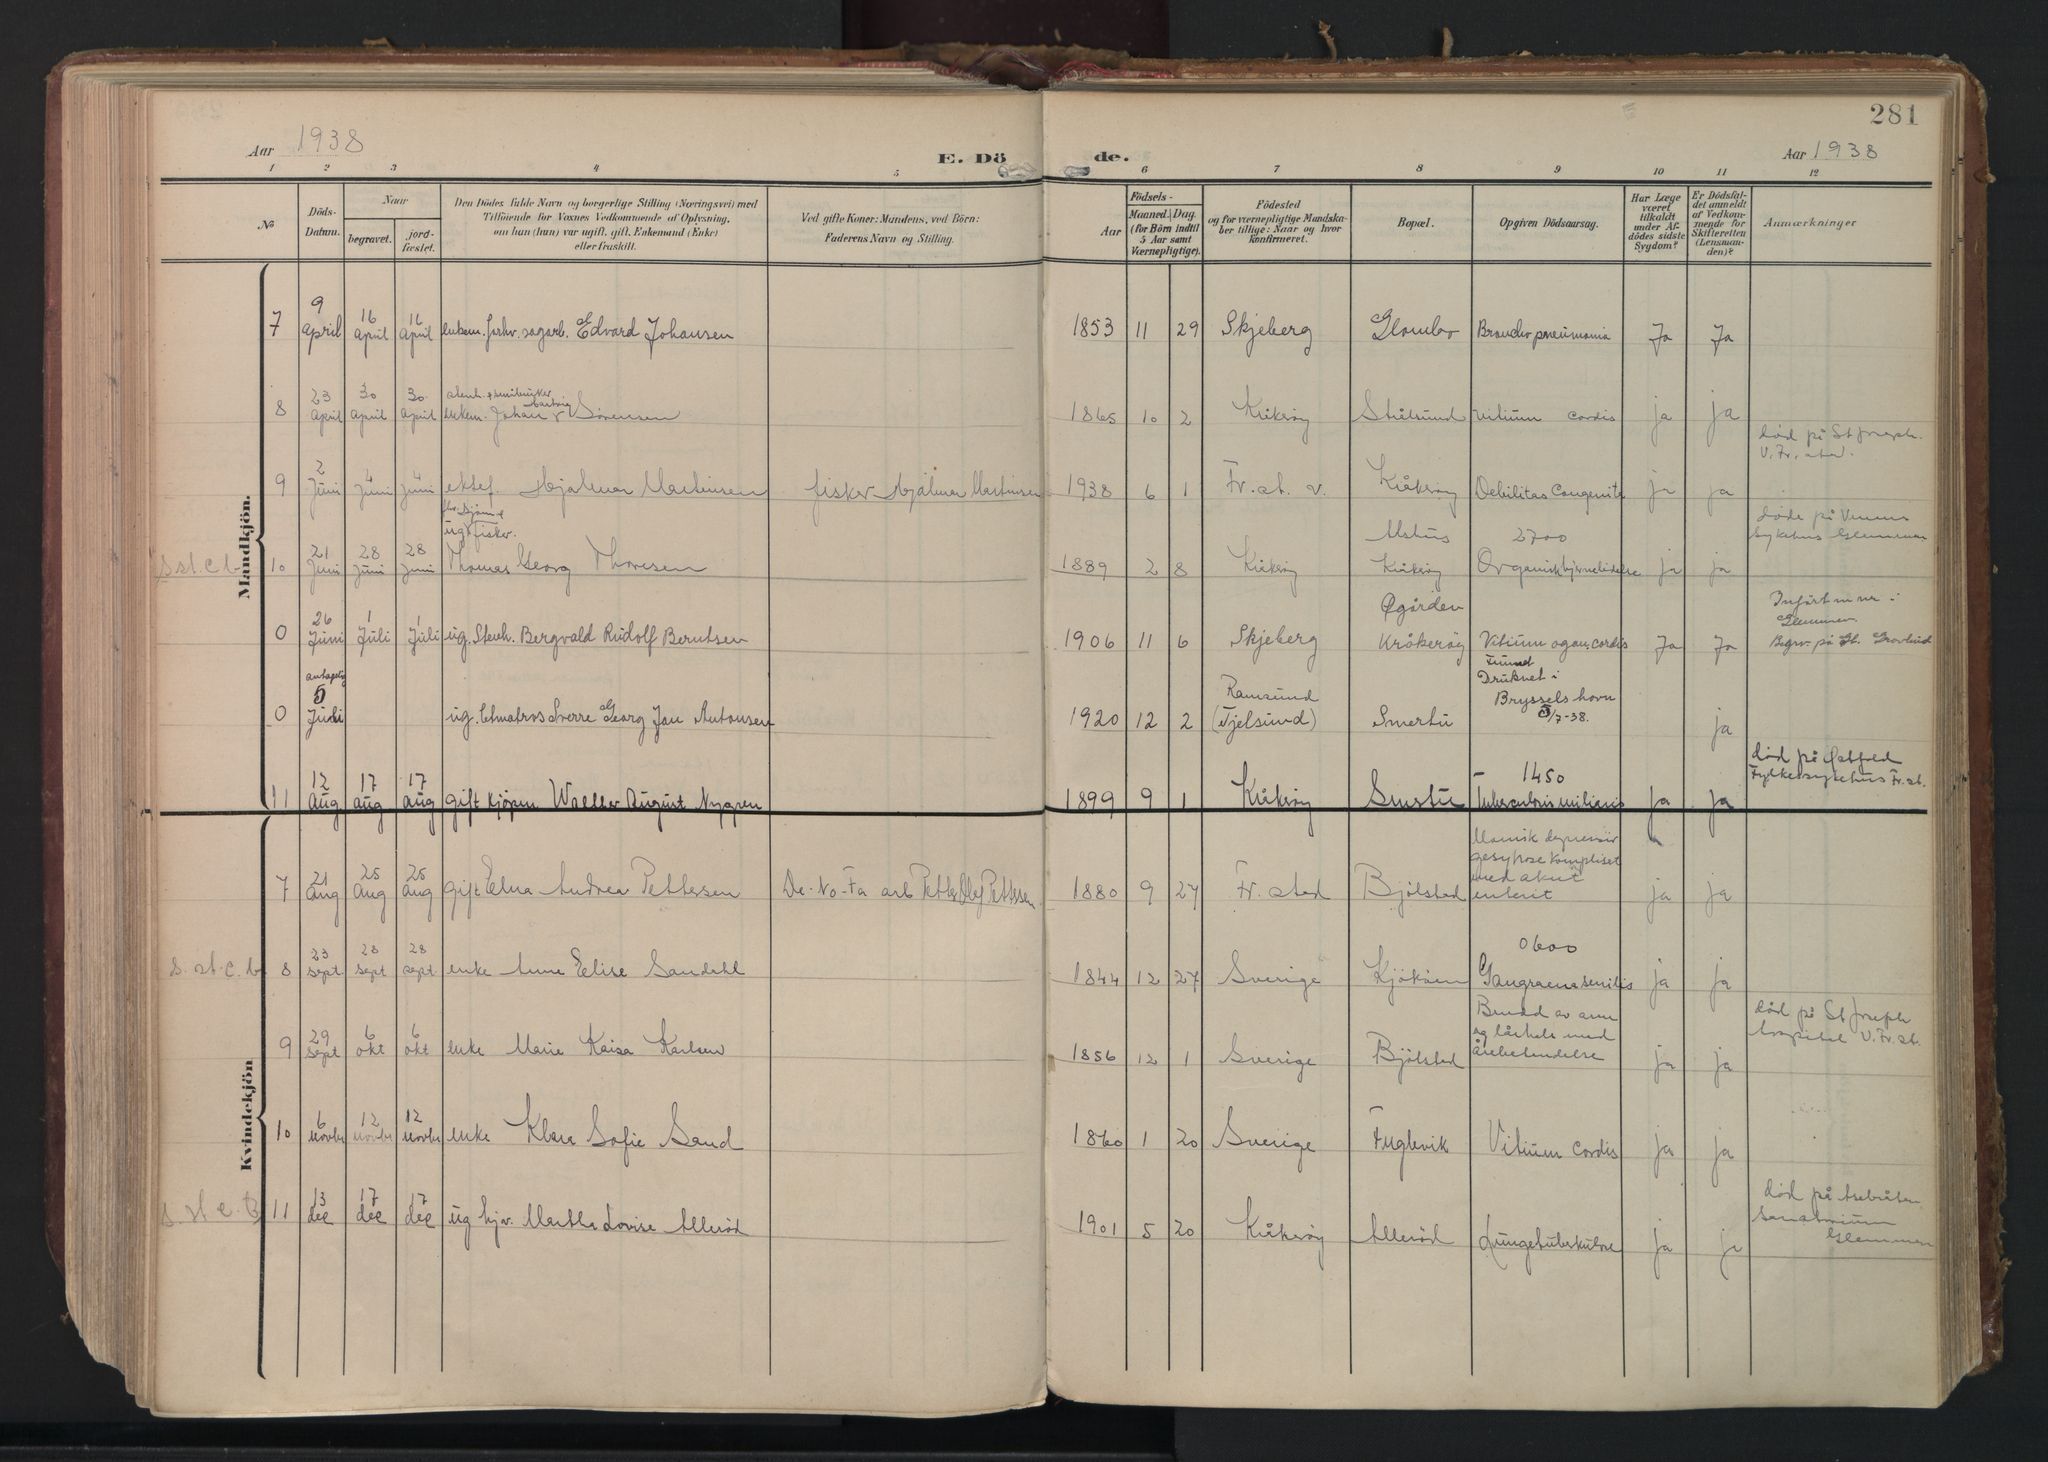 281
Aar 1938
E. Dö
de.
Aar 1938
1 2 3 4 5 6 7 8 9 10 11 12
No
Döds-
Datum.
Naar
begravet.
jord-
fæstet.
Den Dödes fulde Navn og borgerlige Stilling (Næringsvei) med
Tilföiende for Voxnes Vedkommende af Oplysning,
om han (hun) var ugift, gift, Enkemand (Enke)
eller fraskilt.
Ved gifte Koner: Mandens, ved Börn:
Faderens Navn og Stilling.
Födsels-
Aar
Maaned. Dag.
(for Börn indtil
5 Aar samt
Værnepligtige).
Födested
og for værnepligtige Mandska-
ber tillige: Naar og hvor
konfirmeret.
Bopæl.
Opgiven Dödsaarsag.
Har Læge
været
tilkaldt
under Af-
dödes sidste
Sygdom?
Er Dödsfal-
det anmeldt
af Vedkom-
mende for
Skifteretten
(Lensman-
den)?
Anmærkninger
Mandkjön.
7 9 April 16 April 16 April enkem. forhv. sagarb. Edvard Johansen 1853 11 29 Skjeberg Glombo Broncho pneumonia Ja Ja
8 23 April 30 April 30 April enkem. Johan Hartvig Sørensen 1865 10 2 Kråkerøy Stålsund Vitium cordis ja ja
død på St Joseph.
V. Fr. stad.
9 2 Juni 4 Juni 4 Juni ektef. Hjalmar Martinsen fisker Hjalmar Martinsen 1938 6 1 Fr. st. v. Kråkerøy Debilitas Congenita ja ja
ug. fisker. 2700
døde på
Sykehus Glemmen
10 21 Juni 28 Juni 28 Juni Thomas Georg Thoresen 1889 2 8 Kråkerøy Kråkerøy Organisk hjernelidelse ja ja
Øgården
0 26 Juni 1 Juli 1 Juli ug. Bergvald Rudolf Berntsen 1906 11 6 Skjeberg Kråkerøy Vitium cordis Ja Ja
i
Glemmen
Begrv. på Gl. Gravlund
antagelig
Funnet
Druknet i
Bryssels havn
/7-38.
0 5 Juli ug. Sverre Georg Jan Antonsen 1920 12 2 Ramsund (Tjelsund) Smertu ja
1450
død på Østfold
Fylkessykehus Fr. st.
11 12 Aug 17 Aug 17 Aug gift kjøpm. Walter August Nygren 1899 9 1 Kråkerøy Smertu Tuberculosis miliaris ja ja
Kvindekjön
Manisk depressiv
med akut
enterit
7 21 Aug 25 Aug 25 Aug gift Elna Andrea Pettersen De-No-Fa arb Petter Olaf Pettersen 1880 9 27 Fr. stad Bjølstad ja ja
0600
8 23 sept. 28 sept 28 sept enke Anne Elise Sandahl 1844 12 27 Sverige Kjøkøen Gangraena senilis ja ja
Brudd av arm
og lårhals med
årebetendelse
død på St Joseph
hospital V. Fr. st.
9 29 sept 6 okt 6 okt enke Marie Kaisa Karlsen 1856 12 1 Sverige Bjølstad ja ja
10 6 novbr 12 novbr 12 novbr enke Klara Sofie Sand 1860 1 20 Sverige Fuglevik Vitium cordis ja ja
død på
Sanatorium
Glemmen
11 13 dec 17 dec 17 dec ug hjv. Martha Lovise Allerød 1901 5 20 Kråkerøy Allerød Lungetuberkulose ja ja